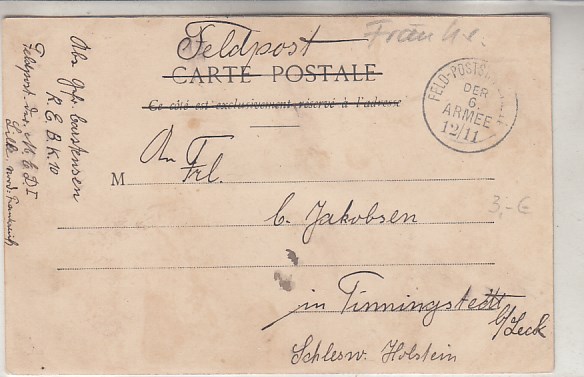 Feldpost
Fran
CARTE POSTALE
Ce côté est exclusivement réservé à l'adresse
FELD-POST
DER
6.
ARMEE
12/11
An
M Frl.
C. Jakobsen
in Tinningstedt
b/Leck
Schlesw. Holstein
3,- €
Abs. Gefr. Carstensen
R. E. B. K. 10
Feldpost
Lille